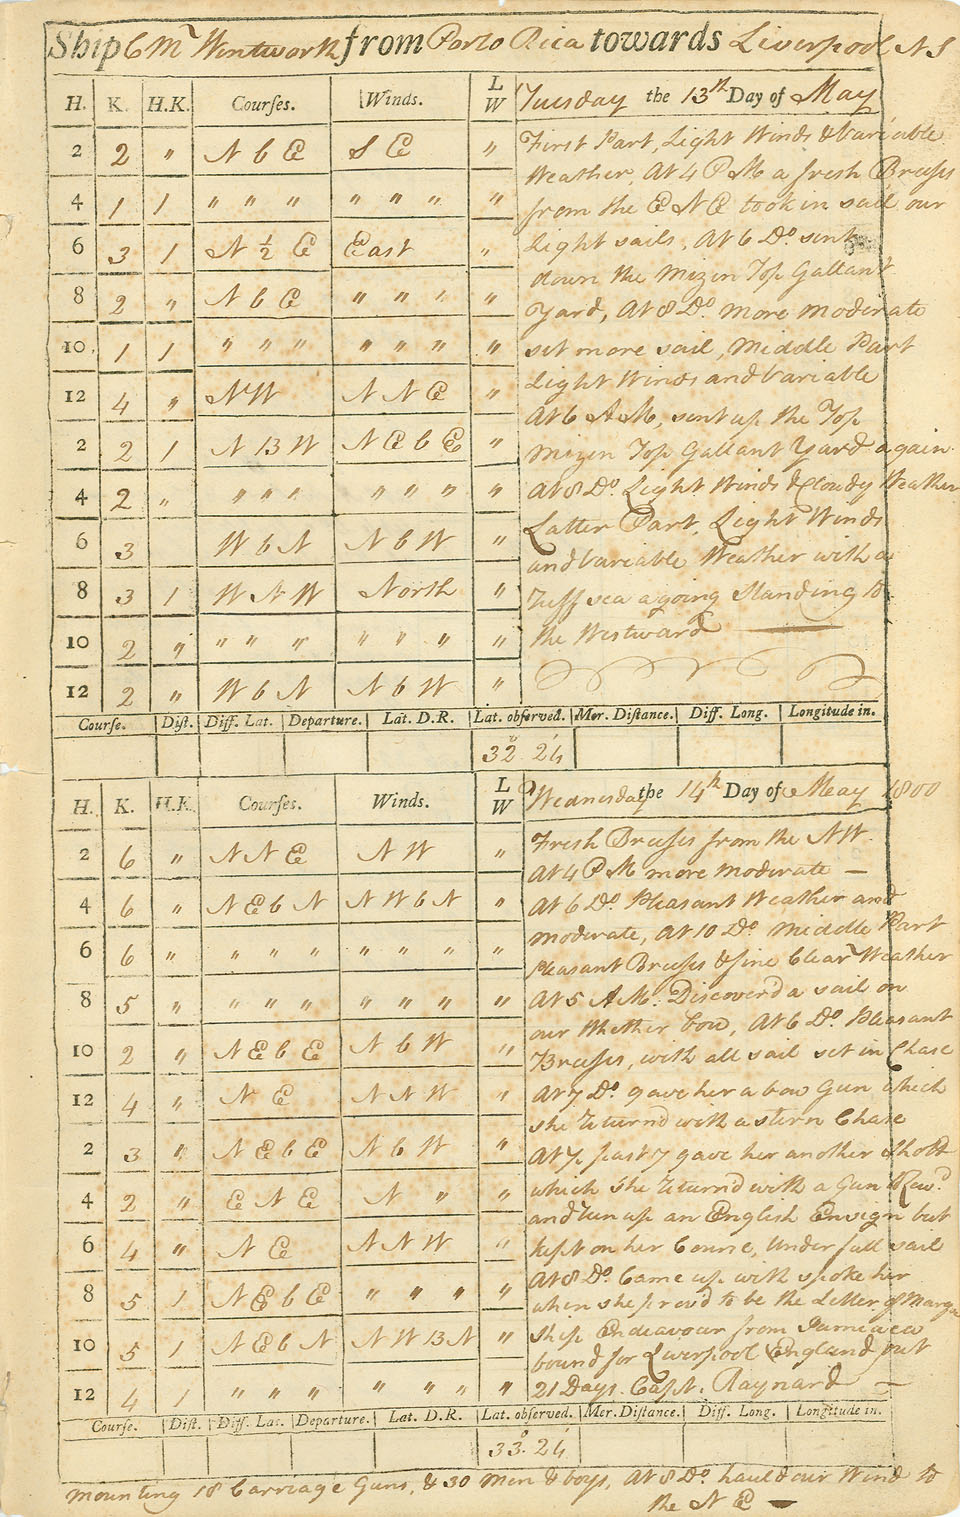 Ship C Mr Wentworth from Porto Rica towards Liverpool N S
H. K. H.K. Courses. Winds. L W Tuesday the 13th Day of May
2 2 " N b E S E "
4 1 1 " " " " " " "
6 3 1 N ½ E East "
8 2 " N b E " " " "
10 1 1 " " " " " " "
12 4 " NW N N E "
2 2 1 N 13 W N E b E "
4 2 " " " " " " " "
6 3 W b N N b W "
8 3 1 W N W North "
10 2 " " " " " " " "
12 2 " W b N N b W "
First Part, Light Winds & Variable
Weather, At 4 P M a fresh Breeses
from the E N E took in sail our
Light sails, At 6 Do. sent
down the Mizen Top Gallant
Yard, At 8 Do. more moderate
set more sail, Middle Part
Light Winds and Variable
At 6 A M, sent up the Top
Mizen Top Gallant Yard again
At 8 Do. Light Winds & Cloudy Weather
Latter Part, Light Winds
and Variable Weather with a
Tuff sea agoing Standing to
the Westward
Course. Dist. Diff. Lat. Departure. Lat. D.R. Lat. observed. Mer. Distance. Diff. Long. Longitude in.
32° 24'
H. K. H.K. Courses. Winds. L W Wednesday the 14th Day of May 1800
2 6 " N N E N W "
4 6 " N E b N N W b N "
6 6 " " " " " " " " "
8 5 " " " " " " " "
10 2 " N E b E N b W "
12 4 " N E N N W "
2 3 " N E b E N b W "
4 2 " E N E N " "
6 4 " N E N N W "
8 5 1 N E b E " " " "
10 5 1 N E b N N W 13 N "
12 4 1 " " " " " " "
Fresh Breeses from the N W
At 4 P M more moderate —
At 6 Do. Pleasant Weather and
moderate, At 10 Do. Middle Part
Pleasant Breeses & fine Clear Weather
At 5 A M. Discover'd a sail on
our Whether bow, At 6 Do. Pleasant
Breeses, with all sail set in Chase
At 7 Do. gave her a bow Gun which
she Return'd with a stern Chase
At ½ past 7 gave her another Shott
which she Return'd with a Gun
and run up an English Ensign but
kept on her Course, Under full sail
At 8 Do. Came up with spoke her
when she prov'd to be the Letter of Marque
ship Endeavour from Jamiaca
bound for Liverpool England out
21 Days. Capt. Raynard —
Course. Dist. Diff. Lat. Departure. Lat. D.R. Lat. observed. Mer. Distance. Diff. Long. Longitude in.
33° 24'
mounting 18 Carriage Guns, & 30 Men & boys, At 8 Do. hauld our Wind to
the N E —